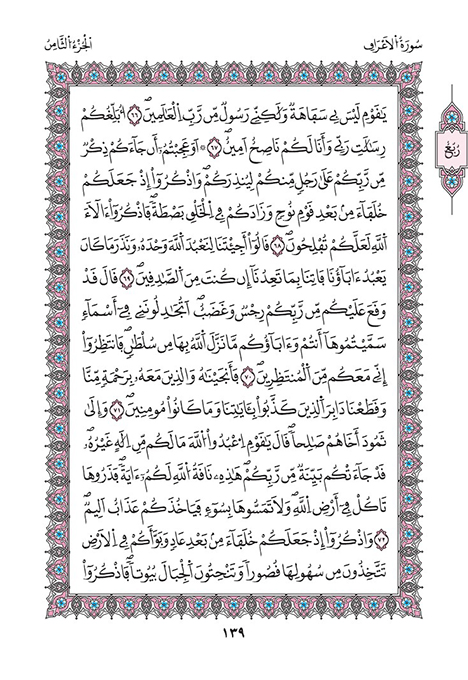 سُورَةُ اُلَاعْرَافِ
اَلْجُزْءُ اُلثَّامِنُ
يَٰقَوْمِ لَيْسَ بِے سَفَاهَةٞ وَلَٰكِنِّے رَسُولٞ مِّن رَّبِّ اِ۬لْعَٰلَمِينَۖ ٦٦ أُبَلِّغُكُمْ
رِسَٰلَٰتِ رَبِّے وَأَنَا لَكُمْ نَاصِحٌ اَمِينٌۖ ٦٧ اَوَعَجِبْتُمُۥٓ أَن جَآءَكُمْ ذِكْرٞ
مِّن رَّبِّكُمْ عَلَىٰ رَجُلٖ مِّنكُمْ لِيُنذِرَكُمْۖ وَاذْكُرُوٓاْ إِذْ جَعَلَكُمْ
خُلَفَآءَ مِنۢ بَعْدِ قَوْمِ نُوحٖ وَزَادَكُمْ فِے اِ۬لْخَلْقِ بَصْۜطَةٗۖ فَاذْكُرُوٓاْ ءَالَآءَ
اَ۬للَّهِ لَعَلَّكُمْ تُفْلِحُونَۖ ٦٨ قَالُوٓاْ أَجِئْتَنَا لِنَعْبُدَ اَ۬للَّهَ وَحْدَهُۥ وَنَذَرَ مَا كَانَ
يَعْبُدُ ءَابَآؤُنَا فَاتِنَا بِمَا تَعِدُنَآ إِن كُنتَ مِنَ اَ۬لصَّٰدِقِينَۖ ٦٩ قَالَ قَدْ
وَقَعَ عَلَيْكُم مِّن رَّبِّكُمْ رِجْسٞ وَغَضَبٌۖ اَتُجَٰدِلُونَنِے فِےٓ أَسْمَآءٖ
سَمَّيْتُمُوهَآ أَنتُمْ وَءَابَآؤُكُم مَّا نَزَّلَ اَ۬للَّهُ بِهَا مِن سُلْطَٰنٖۖ فَانتَظِرُوٓاْ
إِنِّے مَعَكُم مِّنَ اَ۬لْمُنتَظِرِينَۖ ٧٠ فَأَنجَيْنَٰهُ وَالذِينَ مَعَهُۥ بِرَحْمَةٖ مِّنَّا
وَقَطَعْنَا دَابِرَ اَ۬لذِينَ كَذَّبُواْ بِـَٔايَٰتِنَا وَمَا كَانُواْ مُومِنِينَۖ ٧١ وَإِلَىٰ
ثَمُودَ أَخَاهُمْ صَٰلِحاٗۖ قَالَ يَٰقَوْمِ اِ۟عْبُدُواْ اُ۬للَّهَ مَا لَكُم مِّنِ اِلَٰهٍ غَيْرُهُۥۖ
قَدْ جَآءَتْكُم بَيِّنَةٞ مِّن رَّبِّكُمْۖ هَٰذِهِۦ نَاقَةُ اُ۬للَّهِ لَكُمُۥٓ ءَايَةٗۖ فَذَرُوهَا
تَاكُلْ فِےٓ أَرْضِ اِ۬للَّهِۖ وَلَا تَمَسُّوهَا بِسُوٓءٖ فَيَاخُذَكُمْ عَذَابٌ اَلِيمٞۖ
٧٢ وَاذْكُرُوٓاْ إِذْ جَعَلَكُمْ خُلَفَآءَ مِنۢ بَعْدِ عَادٖ وَبَوَّأَكُمْ فِے اِ۬لَارْضِ
تَتَّخِذُونَ مِن سُهُولِهَا قُصُوراٗ وَتَنْحِتُونَ اَ۬لْجِبَالَ بُيُوتاٗۖ فَاذْكُرُوٓاْ
رُبْعٌ
١٣٩